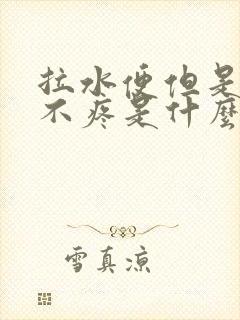 拉水便但是
不疼是什麼
雪真涼